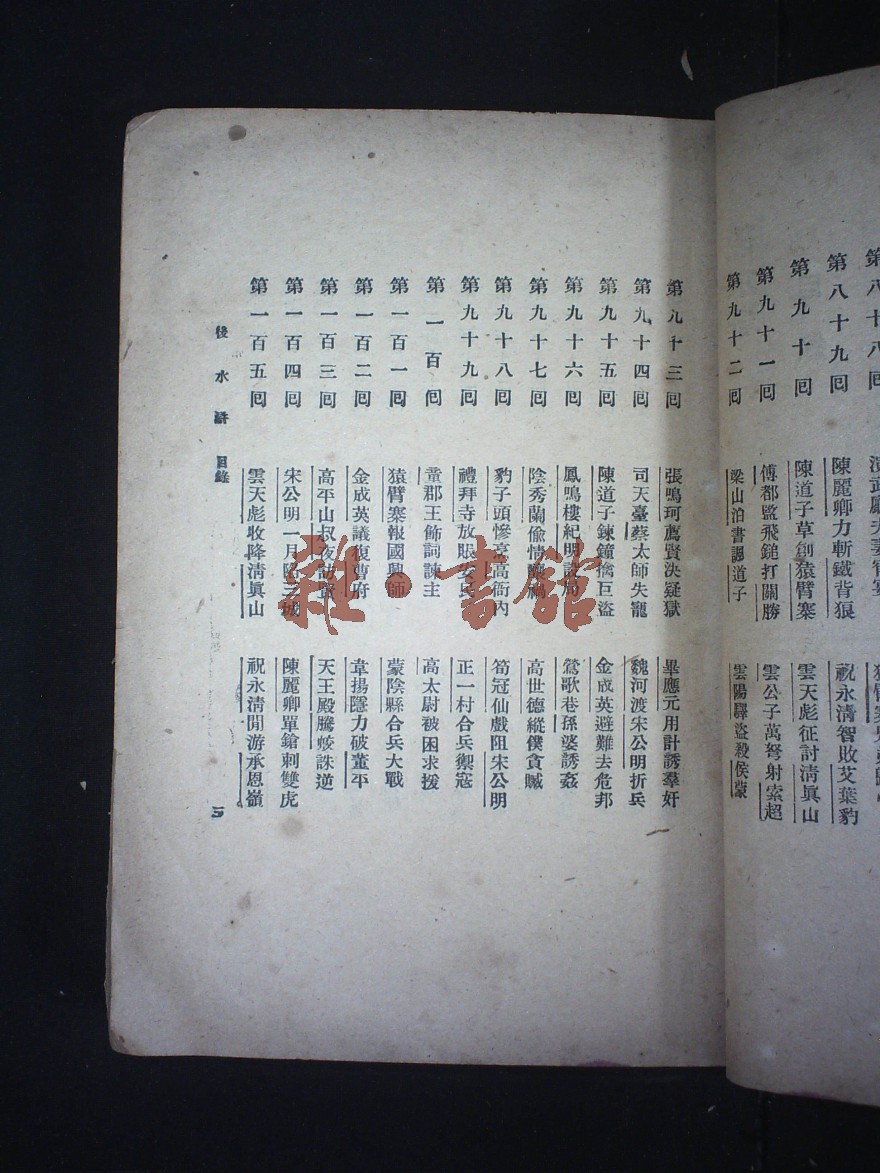 第八十八回 演武廳夫妻
第八十九回 陳麗卿力斬鐵背狼 祝永清智敗艾葉豹
第九十回 陳道子草創猿臂寨 雲天彪征討淸眞山
第九十一回 傅都監飛鎚打關勝 雲公子萬弩射索超
第九十二回 梁山泊書諷道子 雲陽驛盜殺侯蒙
第九十三回 張鳴珂薦賢決疑獄 畢應元用計誘羣奸
第九十四回 司天臺蔡太師失寵 魏河渡宋公明折兵
第九十五回 陳道子鍊鐘擒巨盜 金成英避難去危邦
第九十六回 鳳鳴樓紀明設局 鶯歌巷孫婆誘姦
第九十七回 陰秀蘭偷情釀禍 高世德縱僕貪贓
第九十八回 豹子頭慘烹高衙內 筍冠仙戲阻宋公明
第九十九回 禮拜寺放賑安民 正一村合兵禦寇
第一百回 童郡王飾詞諫主 高太尉被困求援
第一百一回 猿臂寨報國興師 蒙陰縣合兵大戰
第一百二回 金成英議復曹府 韋揚隱力破董平
第一百三回 高平山叔夜訪賢 天王殿騰蛟誅逆
第一百四回 宋公明一月陷三城 陳麗卿單鎗刺雙虎
第一百五回 雲天彪收降淸眞山 祝永淸閒游承恩嶺
後水滸 目錄 五
雜·書館